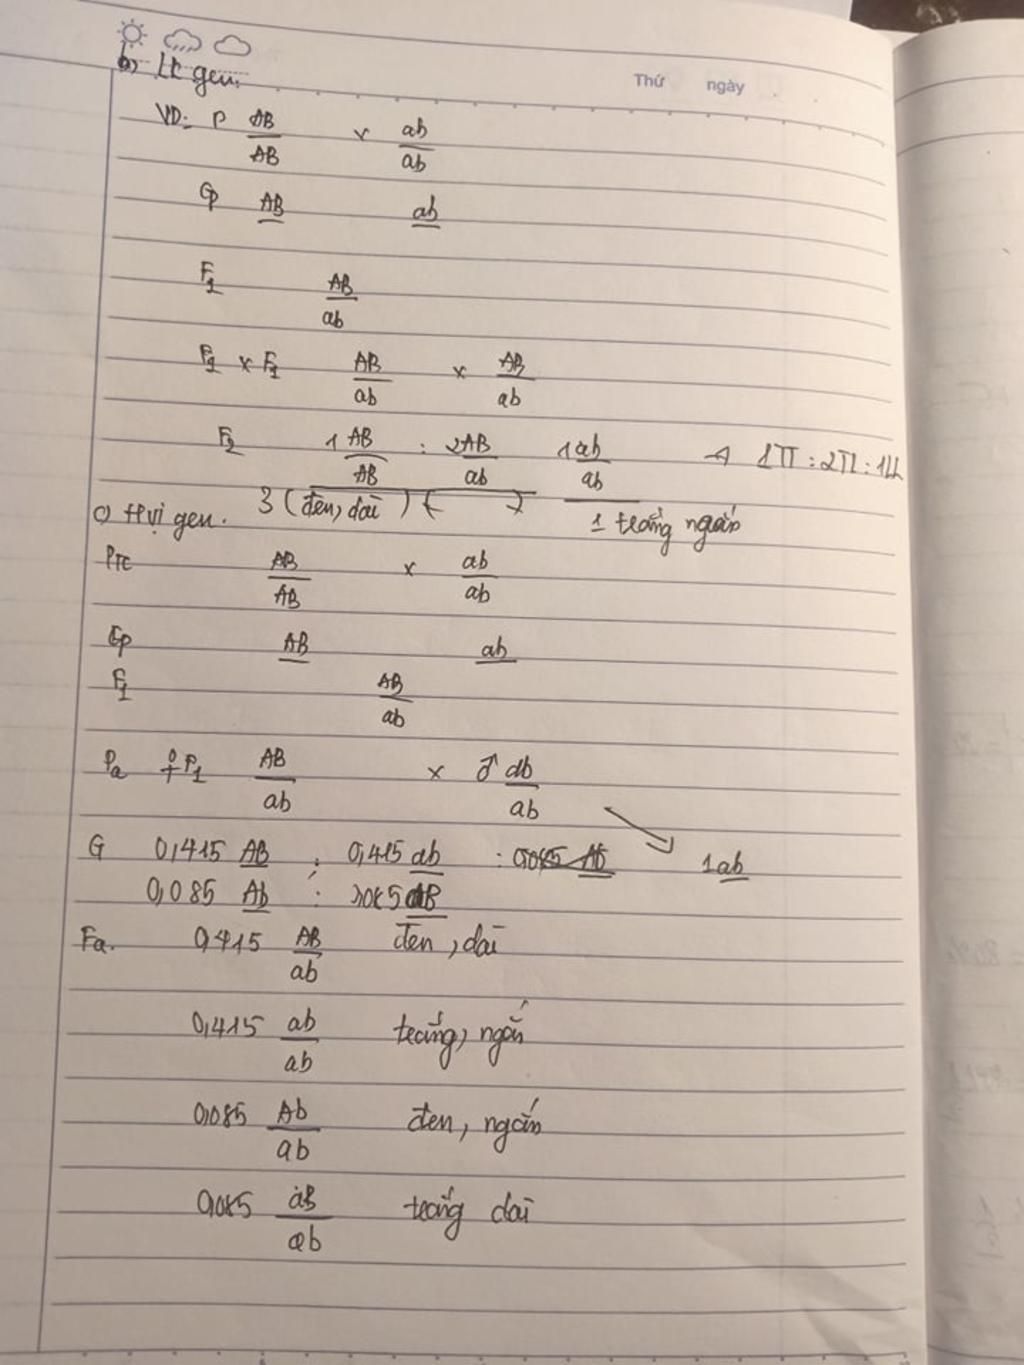 Thứ ngày
b) LK gen.
VD: P AB/AB x ab/ab
Gp AB ab
F1 AB/ab
F1 x F1 AB/ab x AB/ab
F2 1 AB/AB : 2 AB/ab 1 ab/ab → 1TT : 2TL : 1LL
3 (đen, dài) 1 trắng ngắn
c) Hvị gen.
PTC AB/AB x ab/ab
Gp AB ab
F1 AB/ab
Pa ♀ F1 AB/ab x ♂ ab/ab
G 0,415 AB : 0,415 ab : 0,085 Ab 1 ab
0,085 Ab : 0,085 aB
Fa. 0,415 AB/ab đen, dài
0,415 ab/ab trắng, ngắn
0,085 Ab/ab đen, ngắn
0,085 aB/ab trắng dài